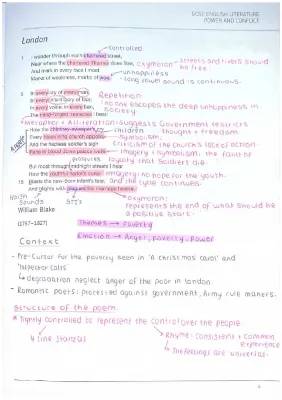 GCSE ENGLISH LITERATURE
POWER AND CONFLICT
London
controlled
I wander through each chartered street,
Near where the chartered Thames does flow, oxymoron → streets and rivers should be free.
And mark in every face I meet
Marks of weakness, marks of woe.
unhappiness
long vowel sound is continuous.
5 In every cry of every man,
In every infant's cry of fear,
In every voice, in every ban,
The mind-forged manacles I hear:
Repetition:
no one escapes the deep unhappiness in society
Metaphor + Alliteration: suggests Government restricts thought + freedom.
How the chimney-sweeper's cry children
Every blackening church appalls, Symbolism:
Criticism of the church's lack of action.
And the hapless soldier's sigh
Runs in blood down palace walls. imagery + symbolism: the fault of
royalty that soldiers die.
But most through midnight streets I hear
How the youthful harlot's curse imagery: no hope for the youth.
15 Blasts the new-born infant's tear, and the cycle continues.
And blights with plagues the marriage hearse.
Harsh sounds
oxymoron:
represents the end of what should be
a positive start.
William Blake
(1757–1827)
Themes → Poverty
Emotion → Anger, poverty, Power
Context
- Pre-cursor for the poverty seen in 'A christmas carol' and
'Inspector calls'
↳ degradation neglect anger of the poor in london.
- Romantic poets: protested against government, Army rule makers.
Structure of the poem.
* Tightly controlled to represent the control over the people.
4 line stanzas
Rhyme: consistent + common
experience
↳ The feelings are universal.